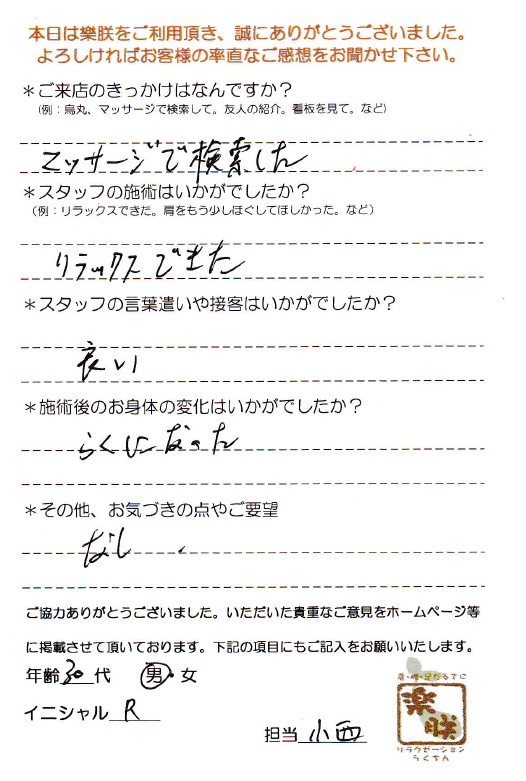 本日は樂朕をご利用頂き、誠にありがとうございました。
よろしければお客様の率直なご感想をお聞かせ下さい。
＊ご来店のきっかけはなんですか？
(例：烏丸、マッサージで検索して。友人の紹介。看板を見て。など)
マッサージで検索した
＊スタッフの施術はいかがでしたか？
(例：リラックスできた。肩をもう少しほぐしてほしかった。など)
リラックスできた
＊スタッフの言葉遣いや接客はいかがでしたか？
良い
＊施術後のお身体の変化はいかがでしたか？
らくになった
＊その他、お気づきの点やご要望
なし
ご協力ありがとうございました。いただいた貴重なご意見をホームページ等
に掲載させて頂いております。下記の項目にもご記入をお願いいたします。
年齢30代 男・女
イニシャル R
担当 小西
樂朕
リラクゼーション
らくちん